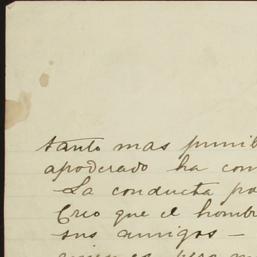 tanto mas punib
apoderado ha com
La conducta pa
Creo que el hombr
sus amigos –